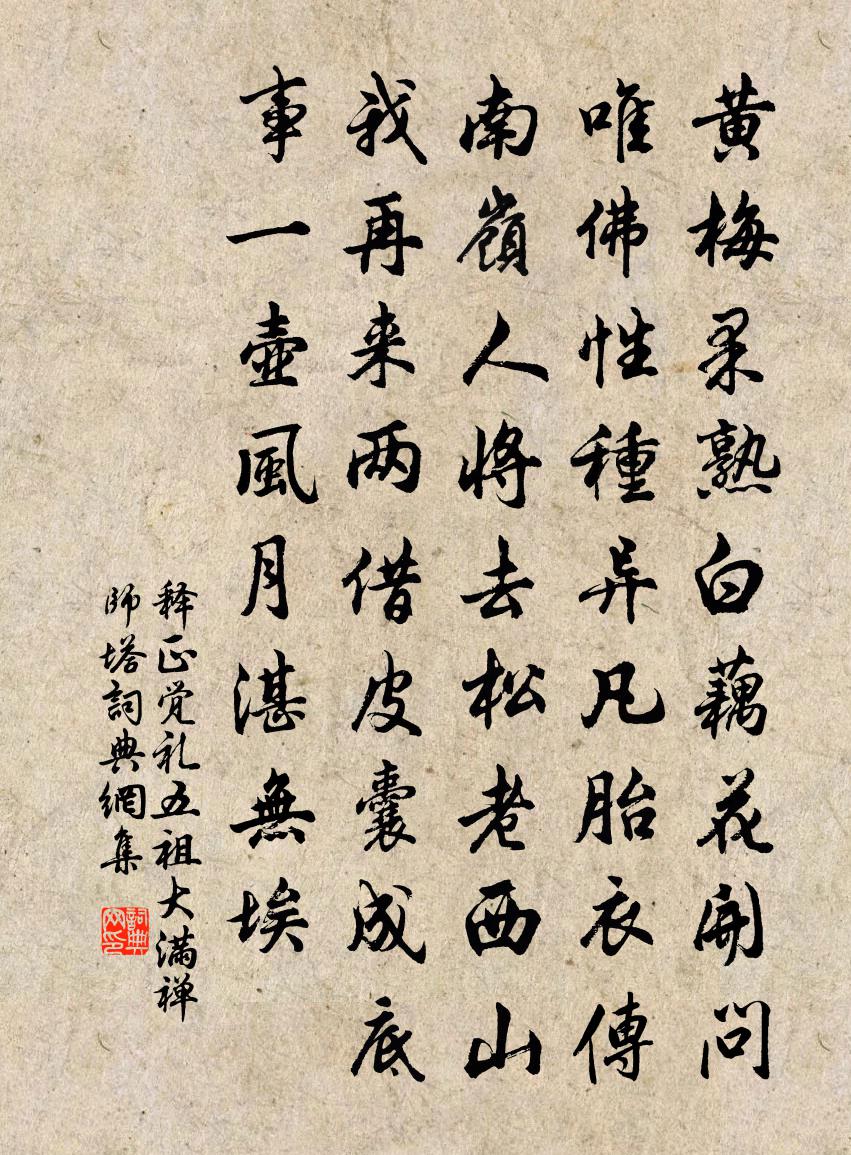 黄梅果熟白藕花開問
唯佛性種异凡胎衣傳
南嶺人將去松老西山
我再来两借皮囊成底
事一壺風月湛無埃
释正覚礼五祖大满禅
師塔詞典網集
詞典网印